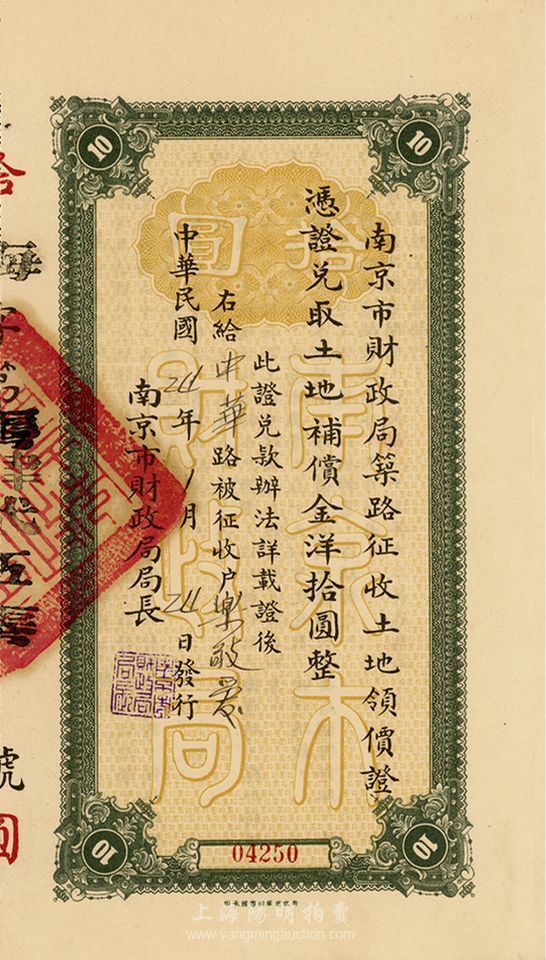 南京市財政局築路征收土地領價證
憑證兌取土地補償金洋拾圓整
此證兌款辦法詳載證後
右給中華路被征收户樂
中華民國 年 月 日發行
南京市財政局局長
拾圓
南京市
財政局
10
10
10
10
04250
號
圓
上海陽明拍賣
www.yangmingauction.com